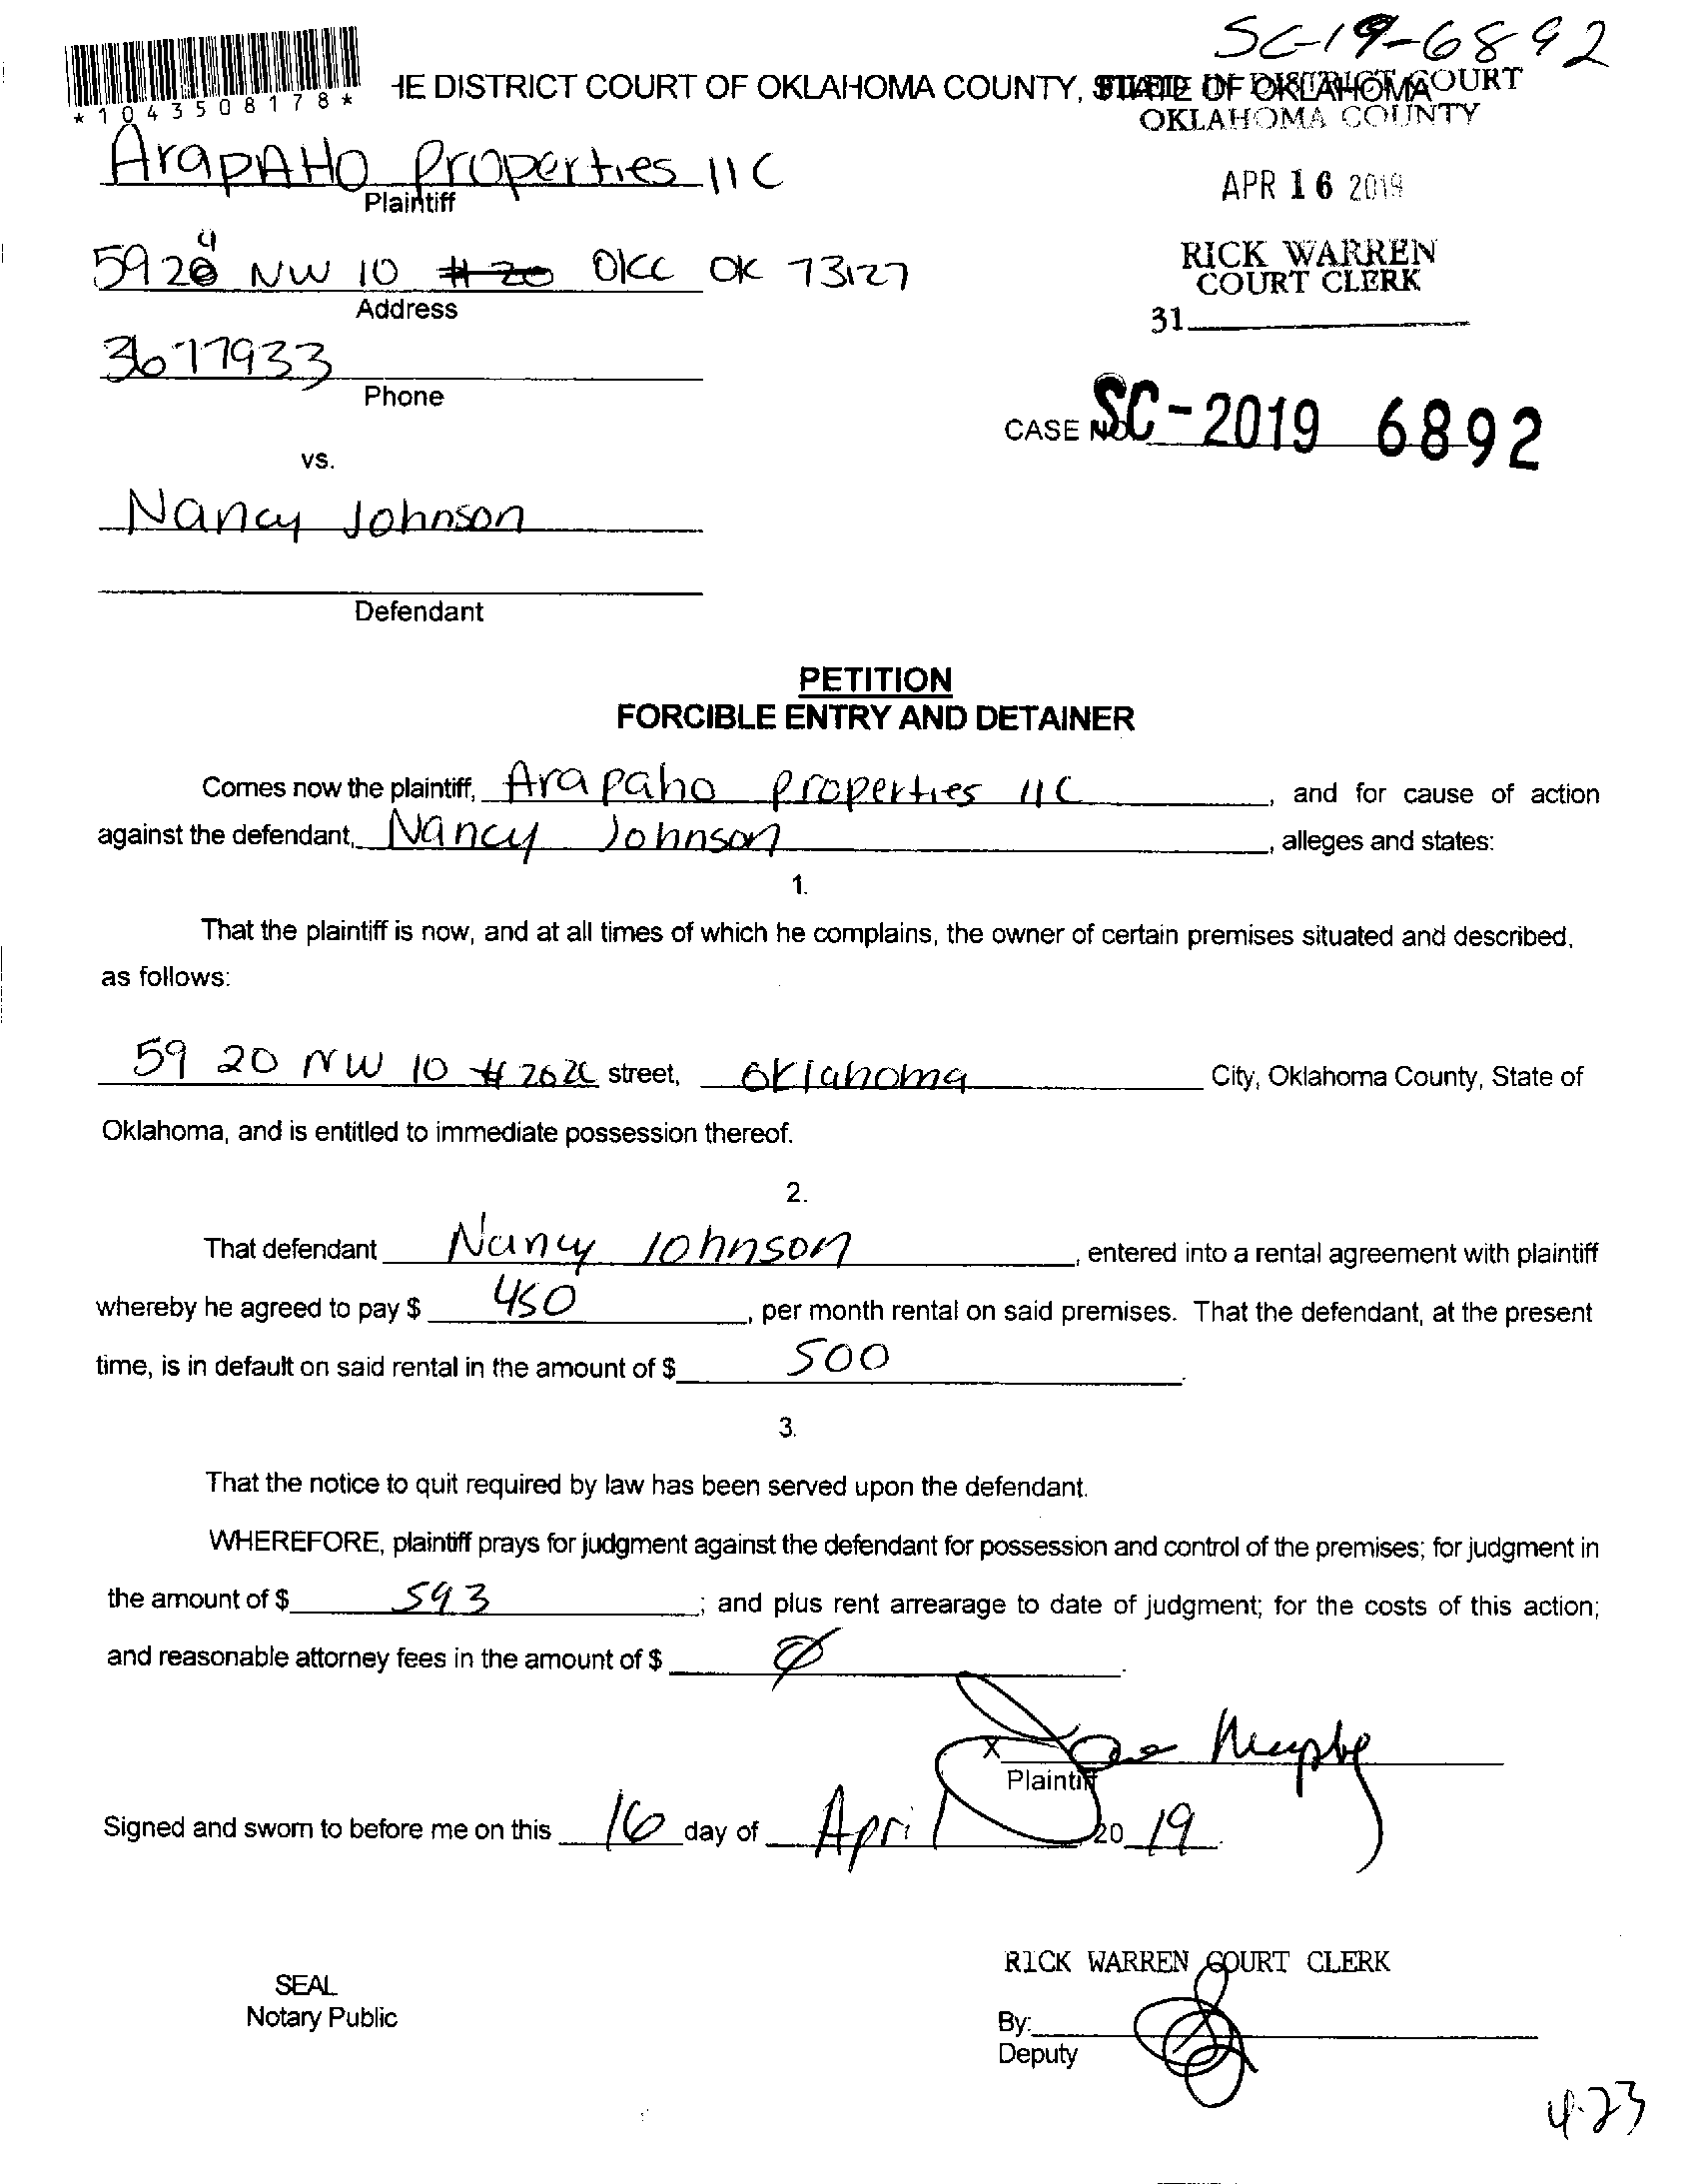 SC-19-6892
*1043508178*
HE DISTRICT COURT OF OKLAHOMA COUNTY, STATE OF OKLAHOMA
FILED IN DISTRICT COURT
OKLAHOMA COUNTY
ArapAHO Properties llC
Plaintiff
APR 16 2019
5924 NW 10 OKC OK 73127
Address
RICK WARREN
COURT CLERK
31
3677933
Phone
CASE NO. SC-2019 6892
vs.
Nancy Johnson
Defendant
PETITION
FORCIBLE ENTRY AND DETAINER
Comes now the plaintiff, Arapaho properties llC, and for cause of action
against the defendant, Nancy Johnson, alleges and states:
1.
That the plaintiff is now, and at all times of which he complains, the owner of certain premises situated and described,
as follows:
5920 NW 10 # street, Oklahoma City, Oklahoma County, State of
Oklahoma, and is entitled to immediate possession thereof.
2.
That defendant Nancy Johnson, entered into a rental agreement with plaintiff
whereby he agreed to pay $ 450, per month rental on said premises. That the defendant, at the present
time, is in default on said rental in the amount of $ 500.
3.
That the notice to quit required by law has been served upon the defendant.
WHEREFORE, plaintiff prays for judgment against the defendant for possession and control of the premises; for judgment in
the amount of $ 593; and plus rent arrearage to date of judgment; for the costs of this action;
and reasonable attorney fees in the amount of $ Ø.
X Murphy
Plaintiff
Signed and sworn to before me on this 16 day of April, 20 19.
RICK WARREN COURT CLERK
SEAL
Notary Public
By:
Deputy
4-23